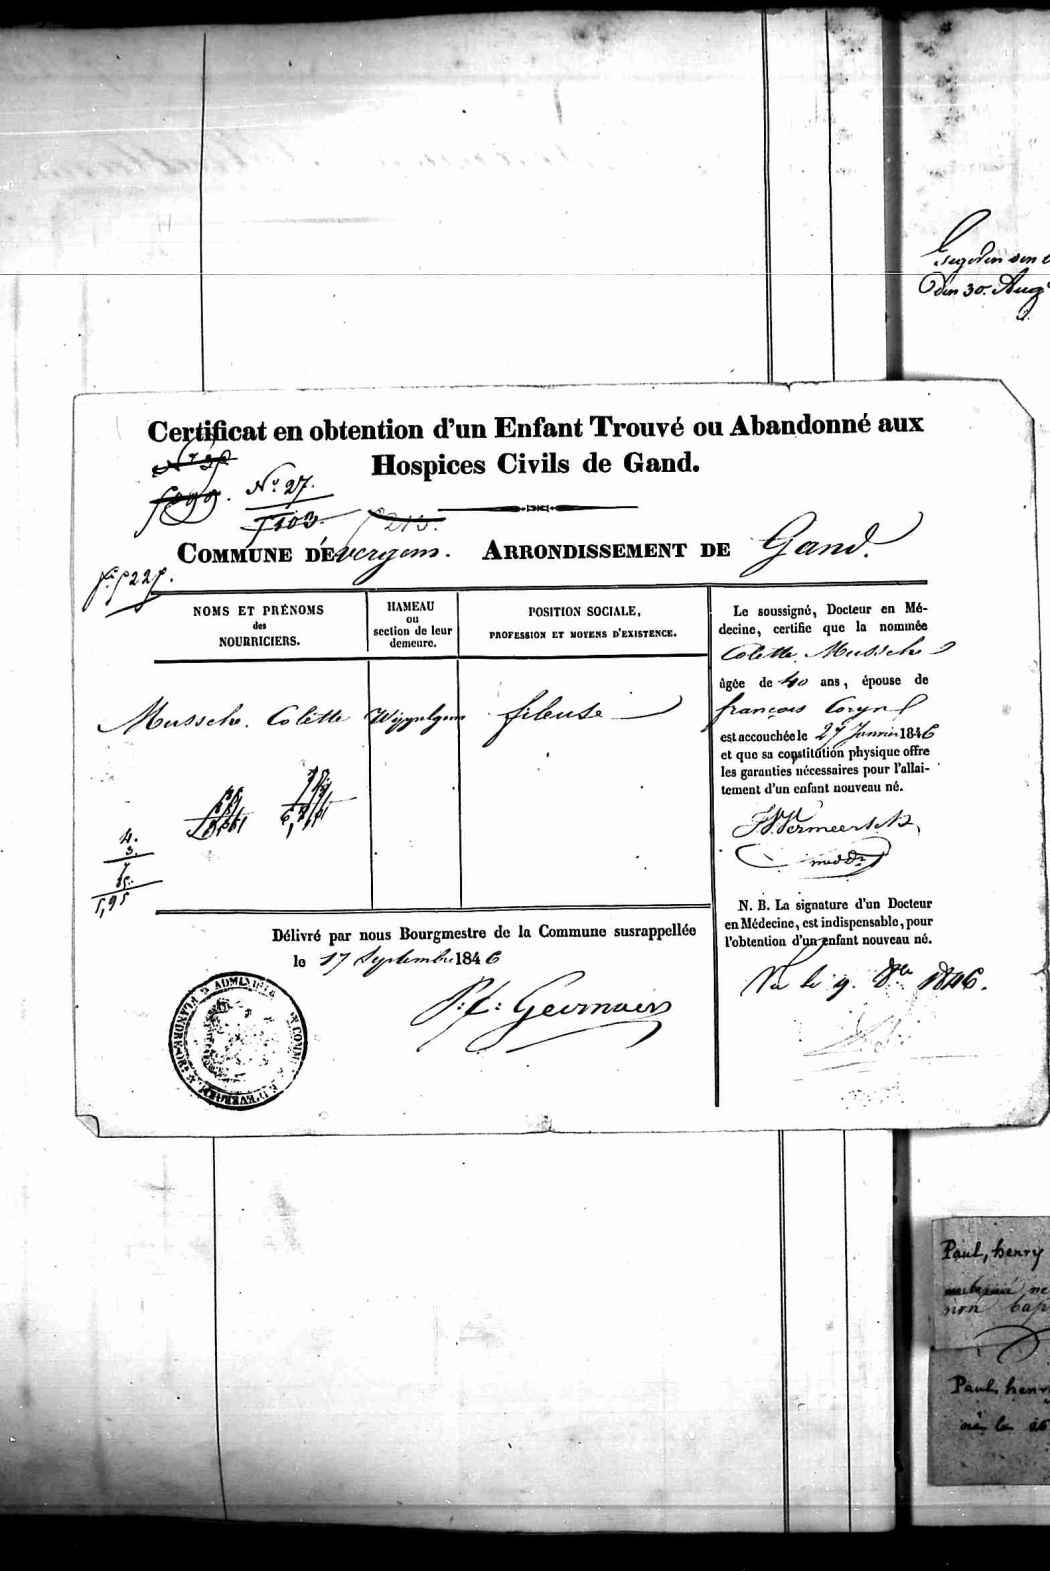 Gegeven den
den 30. Aug
Certificat en obtention d'un Enfant Trouvé ou Abandonné aux
Hospices Civils de Gand.
No. 27.
f 103.
f 213.
COMMUNE D'Evergem. ARRONDISSEMENT DE Gand.
NOMS ET PRÉNOMS
des
NOURRICIERS.
HAMEAU
ou
section de leur
demeure.
POSITION SOCIALE,
PROFESSION ET MOYENS D'EXISTENCE.
Mussche. Colette
Wippelgem
fileuse
4.
3.
Le soussigné, Docteur en Mé-
decine, certifie que la nommée
Colette Mussche
âgée de 40 ans, épouse de
françois Coryn
est accouchée le 27 Janvier 1846
et que sa constitution physique offre
les garanties nécessaires pour l'allai-
tement d'un enfant nouveau né.
med Dr
N. B. La signature d'un Docteur
en Médecine, est indispensable, pour
l'obtention d'un enfant nouveau né.
Vu le 9. 8bre 1846.
Délivré par nous Bourgmestre de la Commune susrappellée
le 17 Septembre 1846
Paul, henry
non bap
Paul, henry
né le 26